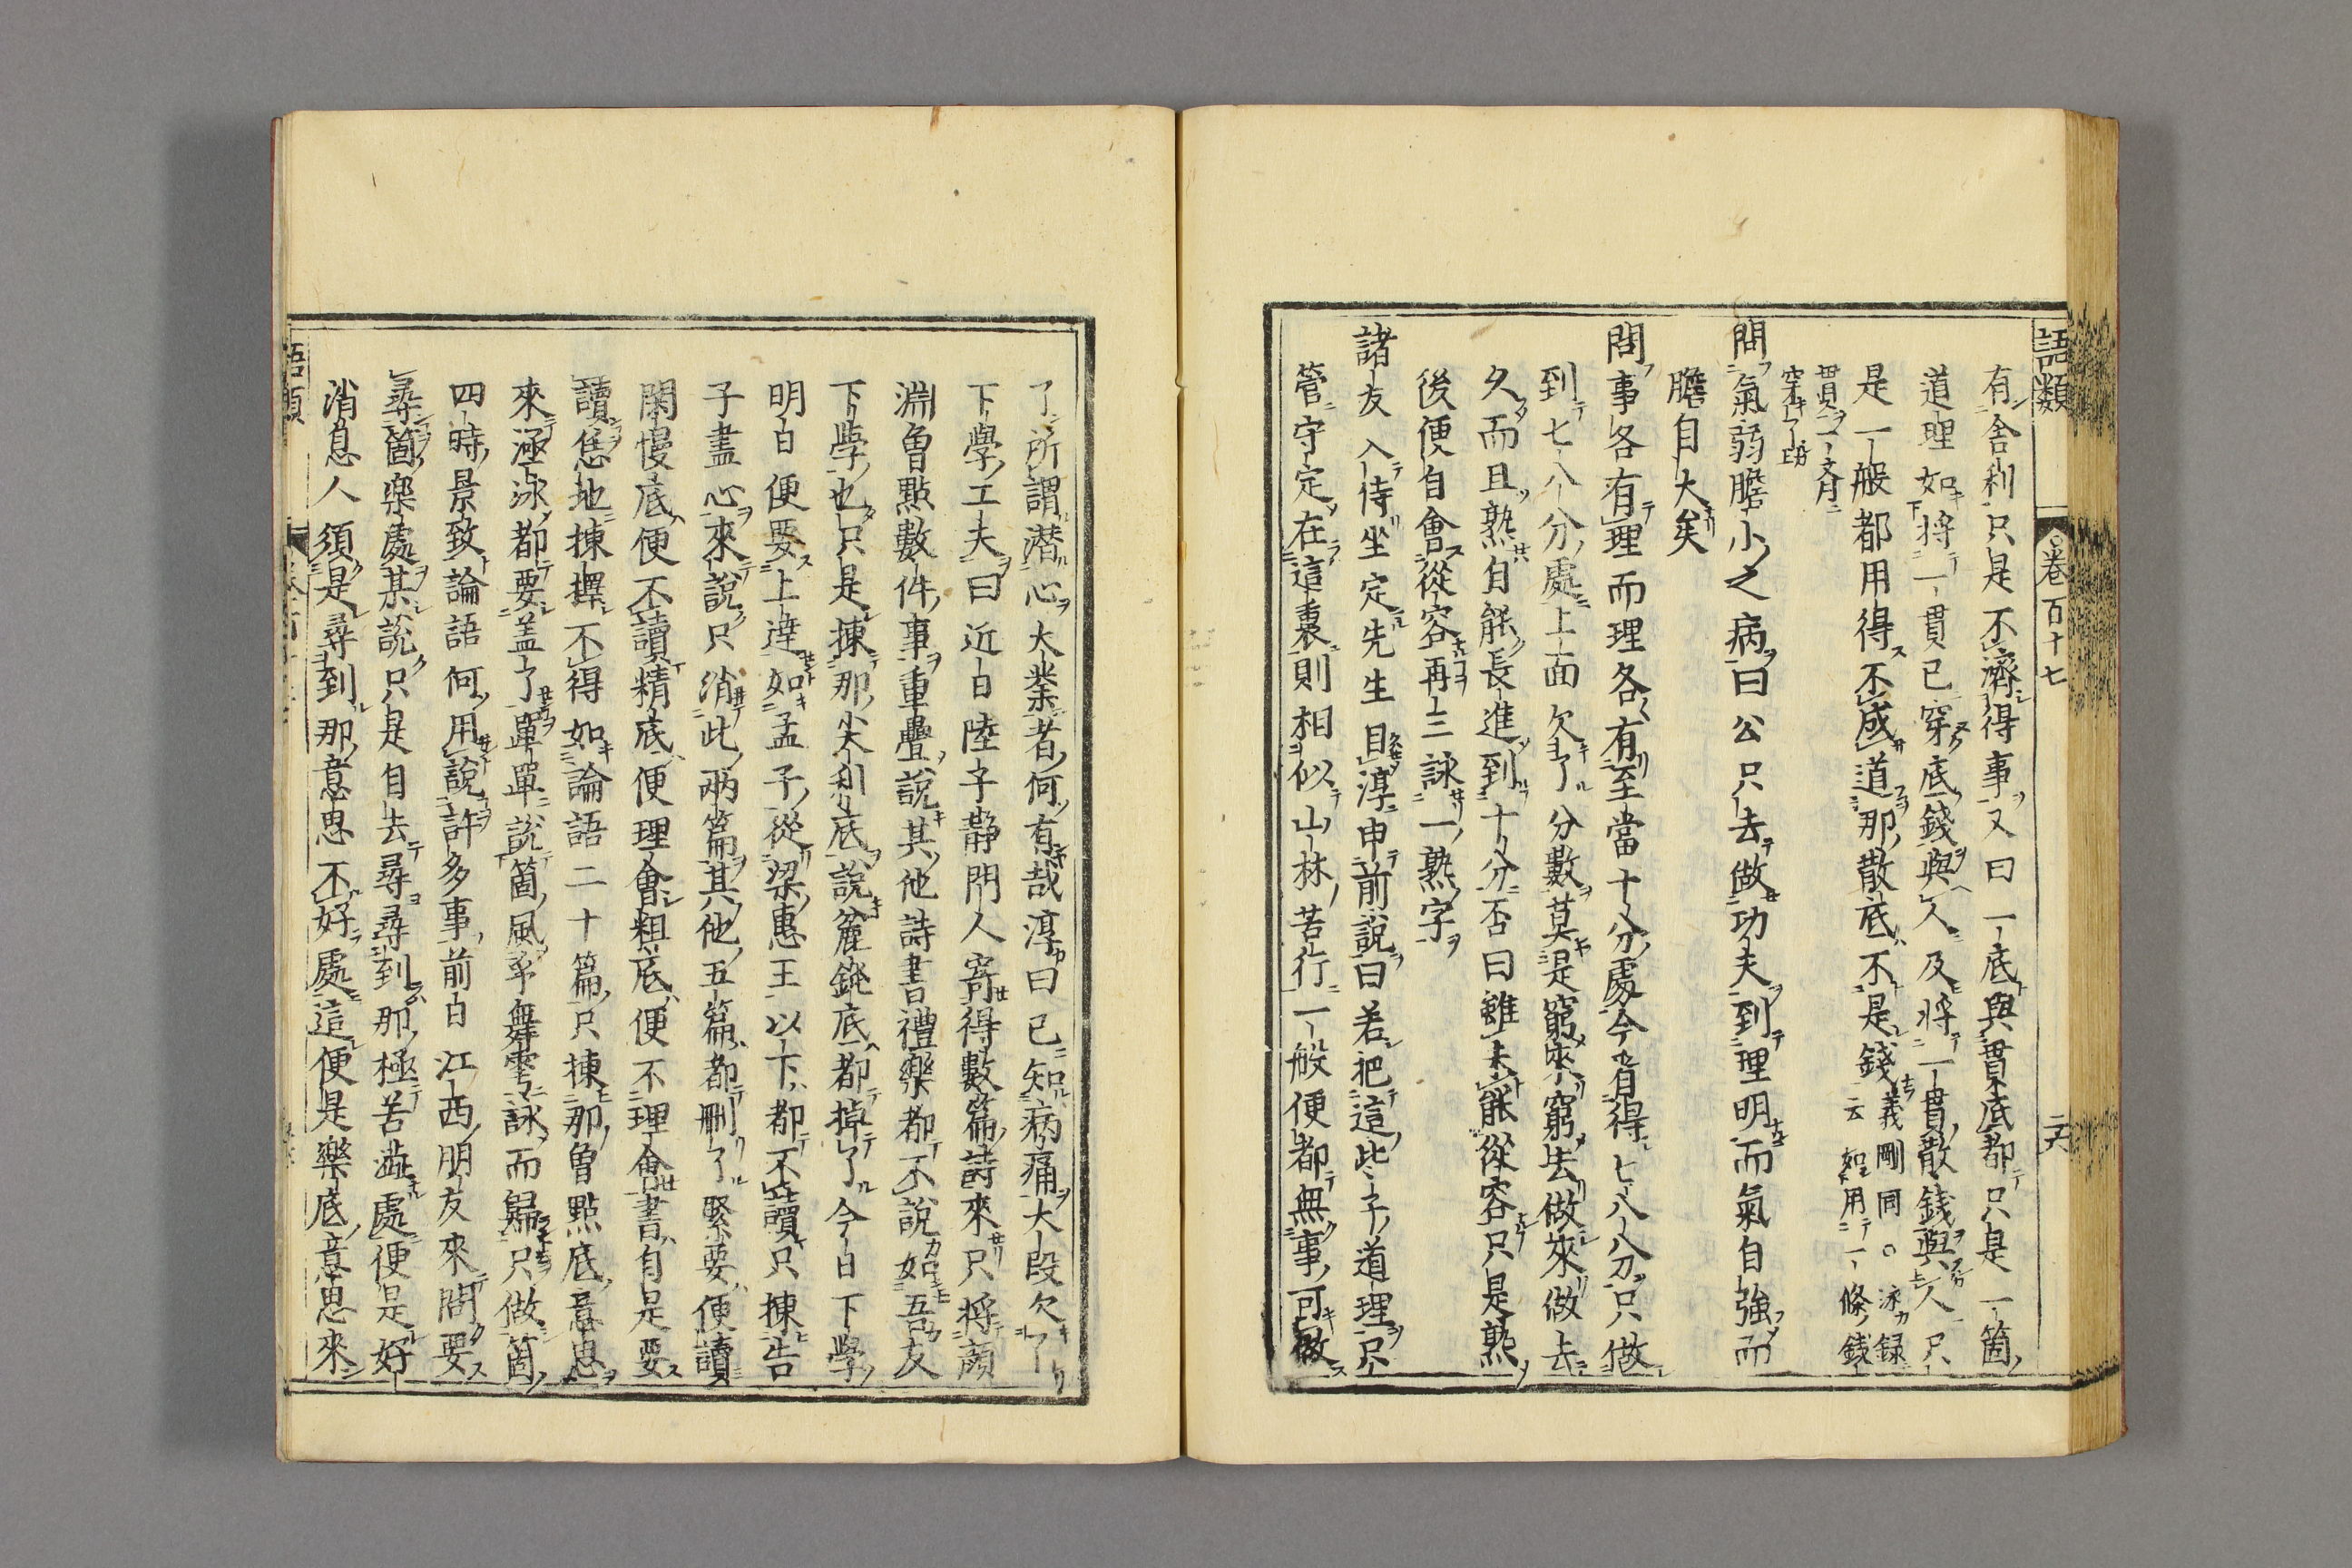 語類
卷百十七
二六
有舍利只是不濟得事又曰一底與貫底都只是一箇
道理如將一貫已穿底錢與人及將一貫散錢與人只
是一般都用得不成道那散底不是錢義剛同○泳録
云如用一條錢
貫一齊
穿了
問氣弱膽小之病曰公只去做功夫到理明而氣自強而
膽自大矣
問事各有理而理各有至當十分處今看得七八分只做
到七八分處上面欠了分數莫是窮來窮去做來做去
久而且熟自能長進到十分否曰雖未能從容只是熟
後便自會從容再三詠一熟字
諸友入侍坐定先生目淳申前說曰若把這些子道理只
管守定在這裏則相似山林苦行一般便都無事可做
了所謂潛心大業者何有哉淳曰已知病痛大段欠了
下學工夫曰近日陸子靜門人寄得數篇詩來只將顏
淵曾點數件事重疊說其他詩書禮樂都不說如吾友
下學也只是揀那尖利底說麄鈍底都掉了今日下學
明日便要上達如孟子從梁惠王以下都不讀只揀告
子盡心來說只消此兩篇其他五篇都刪了緊要便讀
閑慢底便不讀精底便理會粗底便不理會書自是要
讀恁地揀擇不得如論語二十篇只揀那曾點底意思
來涵泳都要蓋了單單說箇風乎舞雩詠而歸只做箇
四時景致論語何用說許多事前日江西朋友來問要
尋箇樂處某說只是自去尋尋到那極苦澁處便是好
消息人須是尋到那意思不好處這便是樂底意思來
語類